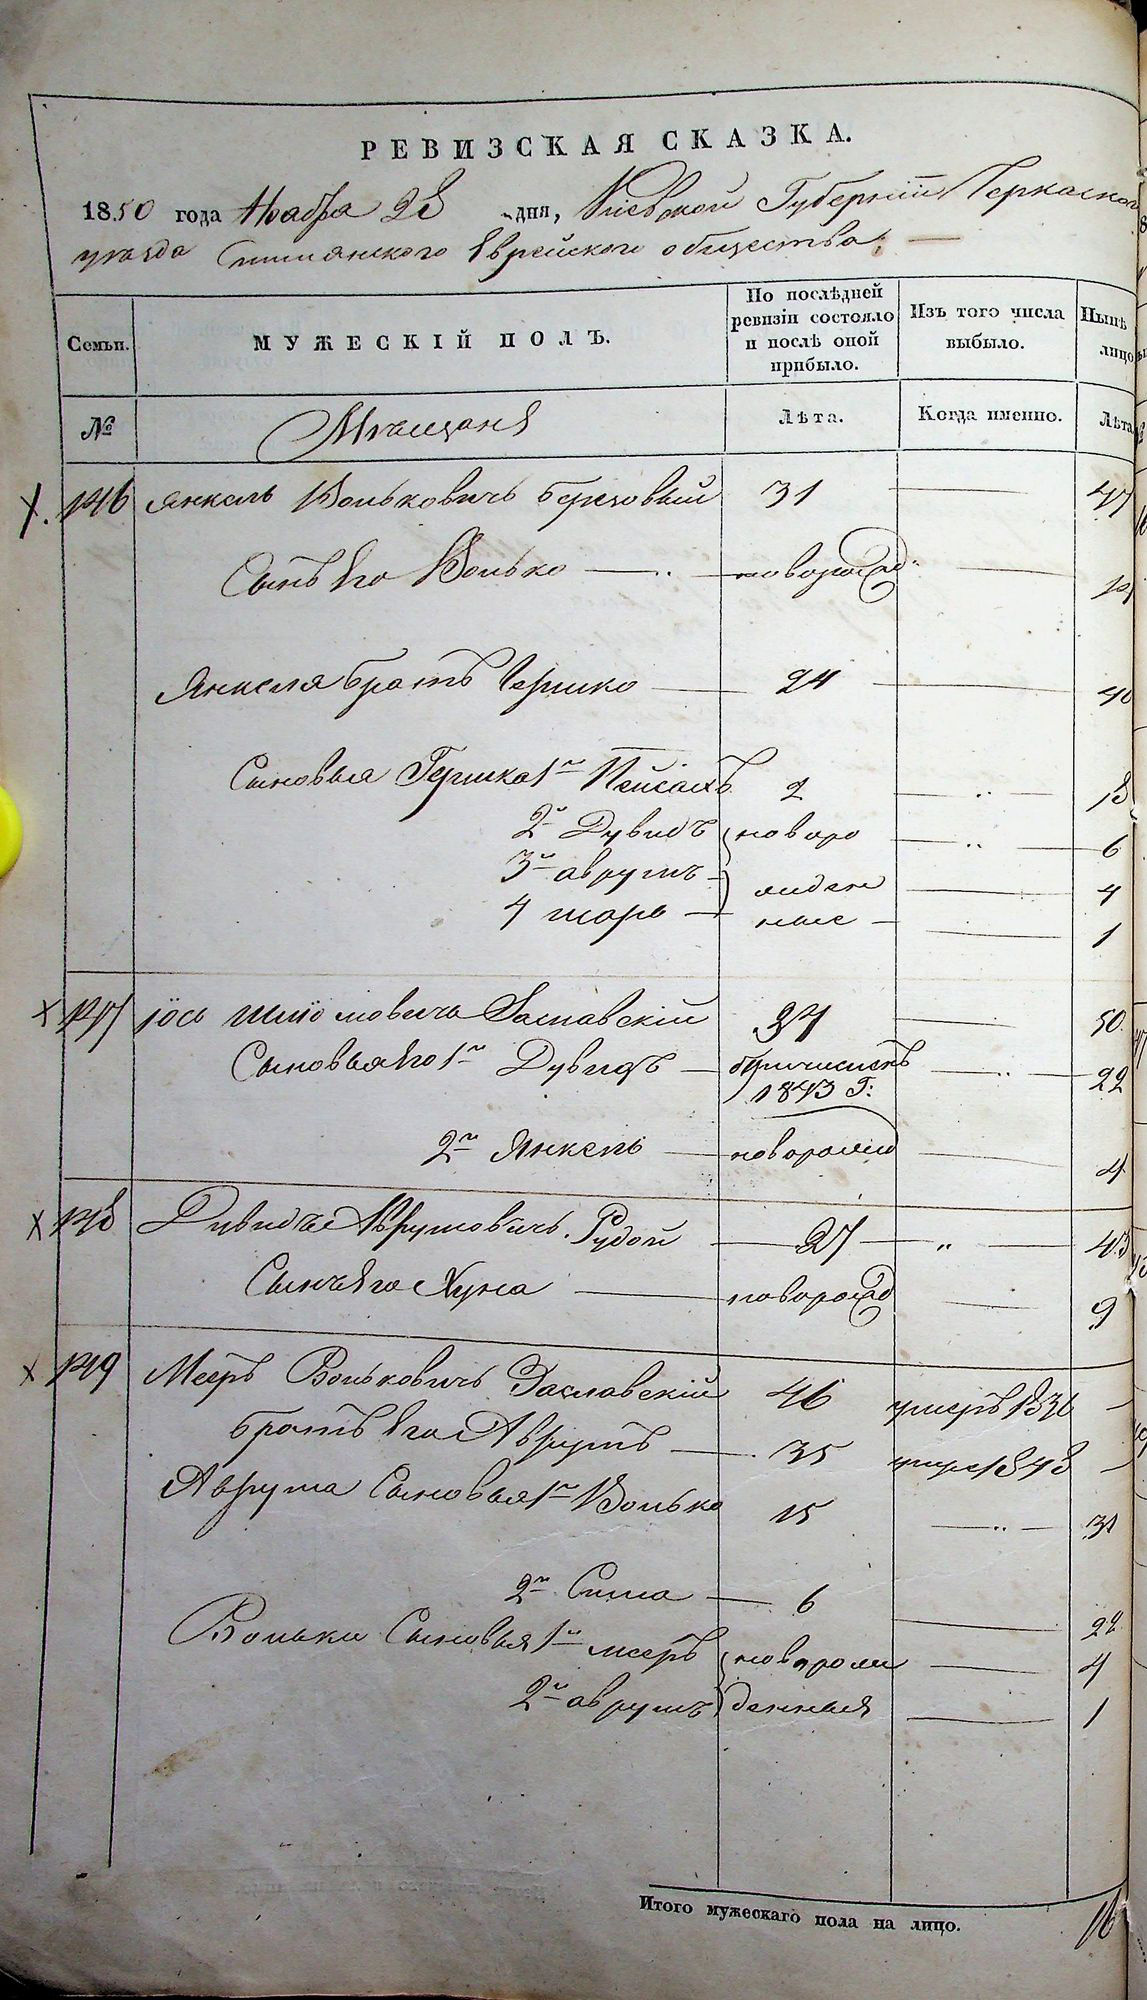 РЕВИЗСКАЯ СКАЗКА.
1850 года Ноября 28 дня, Киевской Губерніи Черкаскаго
уезда Смилянского Еврейского общества.
Семьи. МУЖЕСКІЙ ПОЛЪ. По послѣдней ревизіи состояло и послѣ оной прибыло. Изъ того числа выбыло. Нынѣ лицо
№ Мещане Лѣта. Когда именно. Лѣта
146 Янкель Вольковичъ Березовый 31 47
Сынъ Его Волько новорожд 14
Янкеля братъ Гершко 24 40
Сыновья Гершка 1й Пейсахъ 2 18
2й Дувидъ новоро 6
3й аврумъ жден 4
4 шоръ ные 1
147 Іось Шліомовичъ Заславскій 34 50.
Сыновья Его 1й Дувидъ причисленъ 22
1843 г:
2й Янкель новорожд 4
148 Дувидъ Аврумовичъ Рудой 27 „ 43
Сынъ Его Хуна новорожд 9
149 Мееръ Вольковичъ Заславскій 46 умеръ 1836
братъ Его Аврумъ 35 умре 1848
Аврума Сыновья 1й Волько 15 31
2й Сима 6 22
Волька Сыновья 1й мееръ новорож 4
2й аврумъ денныя 1
Итого мужескаго пола на лицо. 16